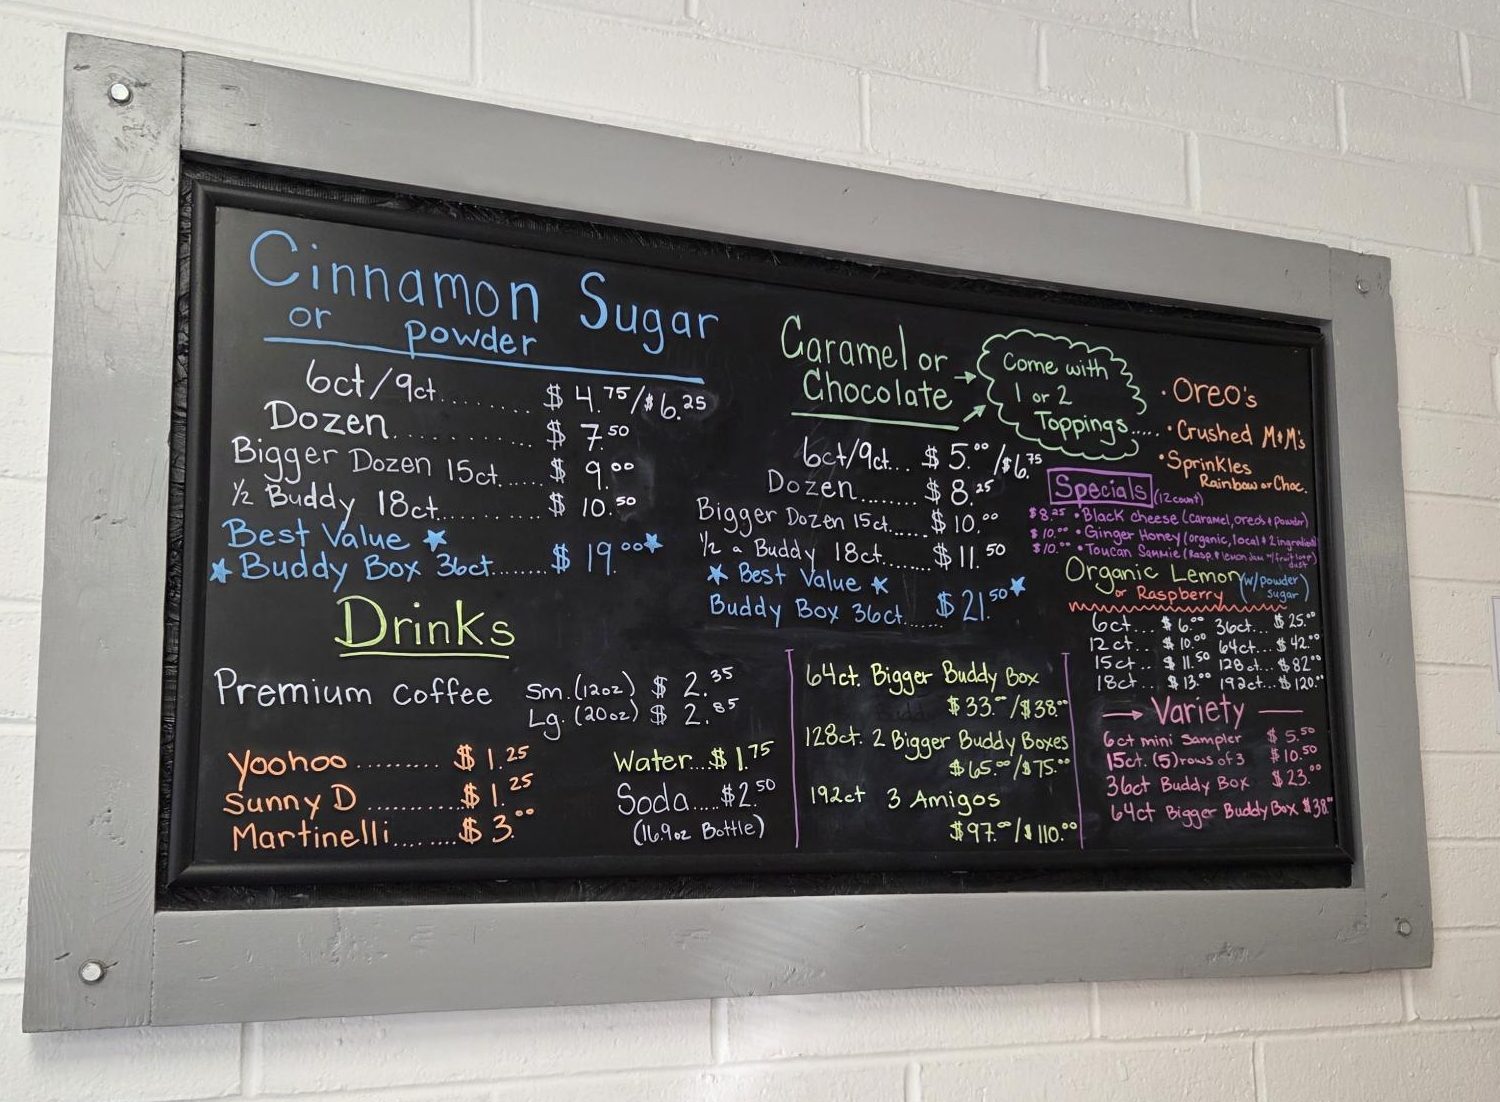 Cinnamon Sugar
or powder
6ct/9ct........ $ 4.75/$6.25
Dozen............ $ 7.50
Bigger Dozen 15ct...... $ 9.00
1/2 Buddy 18ct.......... $ 10.50
Best Value ★
★ Buddy Box 36ct........ $ 19.00 ★
Drinks
Premium Coffee Sm. (12oz) $ 2.35
Lg. (20oz) $ 2.85
Yoohoo ......... $ 1.25
Sunny D .......... $ 1.25
Martinelli........ $ 3.00
Water... $ 1.75
Soda..... $2.50
(16.9oz Bottle)
Caramel or
Chocolate
→ Come with
1 or 2
Toppings.....
• Oreo's
• Crushed M+M's
• Sprinkles
Rainbow or Choc.
6ct/9ct... $ 5.00/$6.75
Dozen....... $ 8.25
Bigger Dozen 15ct..... $ 10.00
1/2 a Buddy 18ct....... $ 11.50
★ Best Value ★
Buddy Box 36ct...... $ 21.50 ★
64ct. Bigger Buddy Box
$ 33.00/$38.00
128ct. 2 Bigger Buddy Boxes
$ 65.00/$75.00
192ct 3 Amigos
$ 97.00/$110.00
Specials (12 count)
$8.25 • Black Cheese (caramel, oreos + powder)
$ 10.00 • Ginger Honey (organic, local + 2 ingredient)
$ 10.00 • Toucan Sammie (Rasp. + lemon w/fruit loop
dust
Organic Lemon (w/powder
or Raspberry sugar)
6ct... $ 6.00 36ct... $ 25.00
12ct... $ 10.00 64ct... $ 42.00
15ct.. $ 11.50 128ct... $ 82.00
18ct... $ 13.00 192ct... $ 120.00
→ Variety
6ct mini Sampler $ 5.50
15ct. (5) rows of 3 $ 10.50
36ct Buddy Box $ 23.00
64ct Bigger Buddy Box $ 38.00